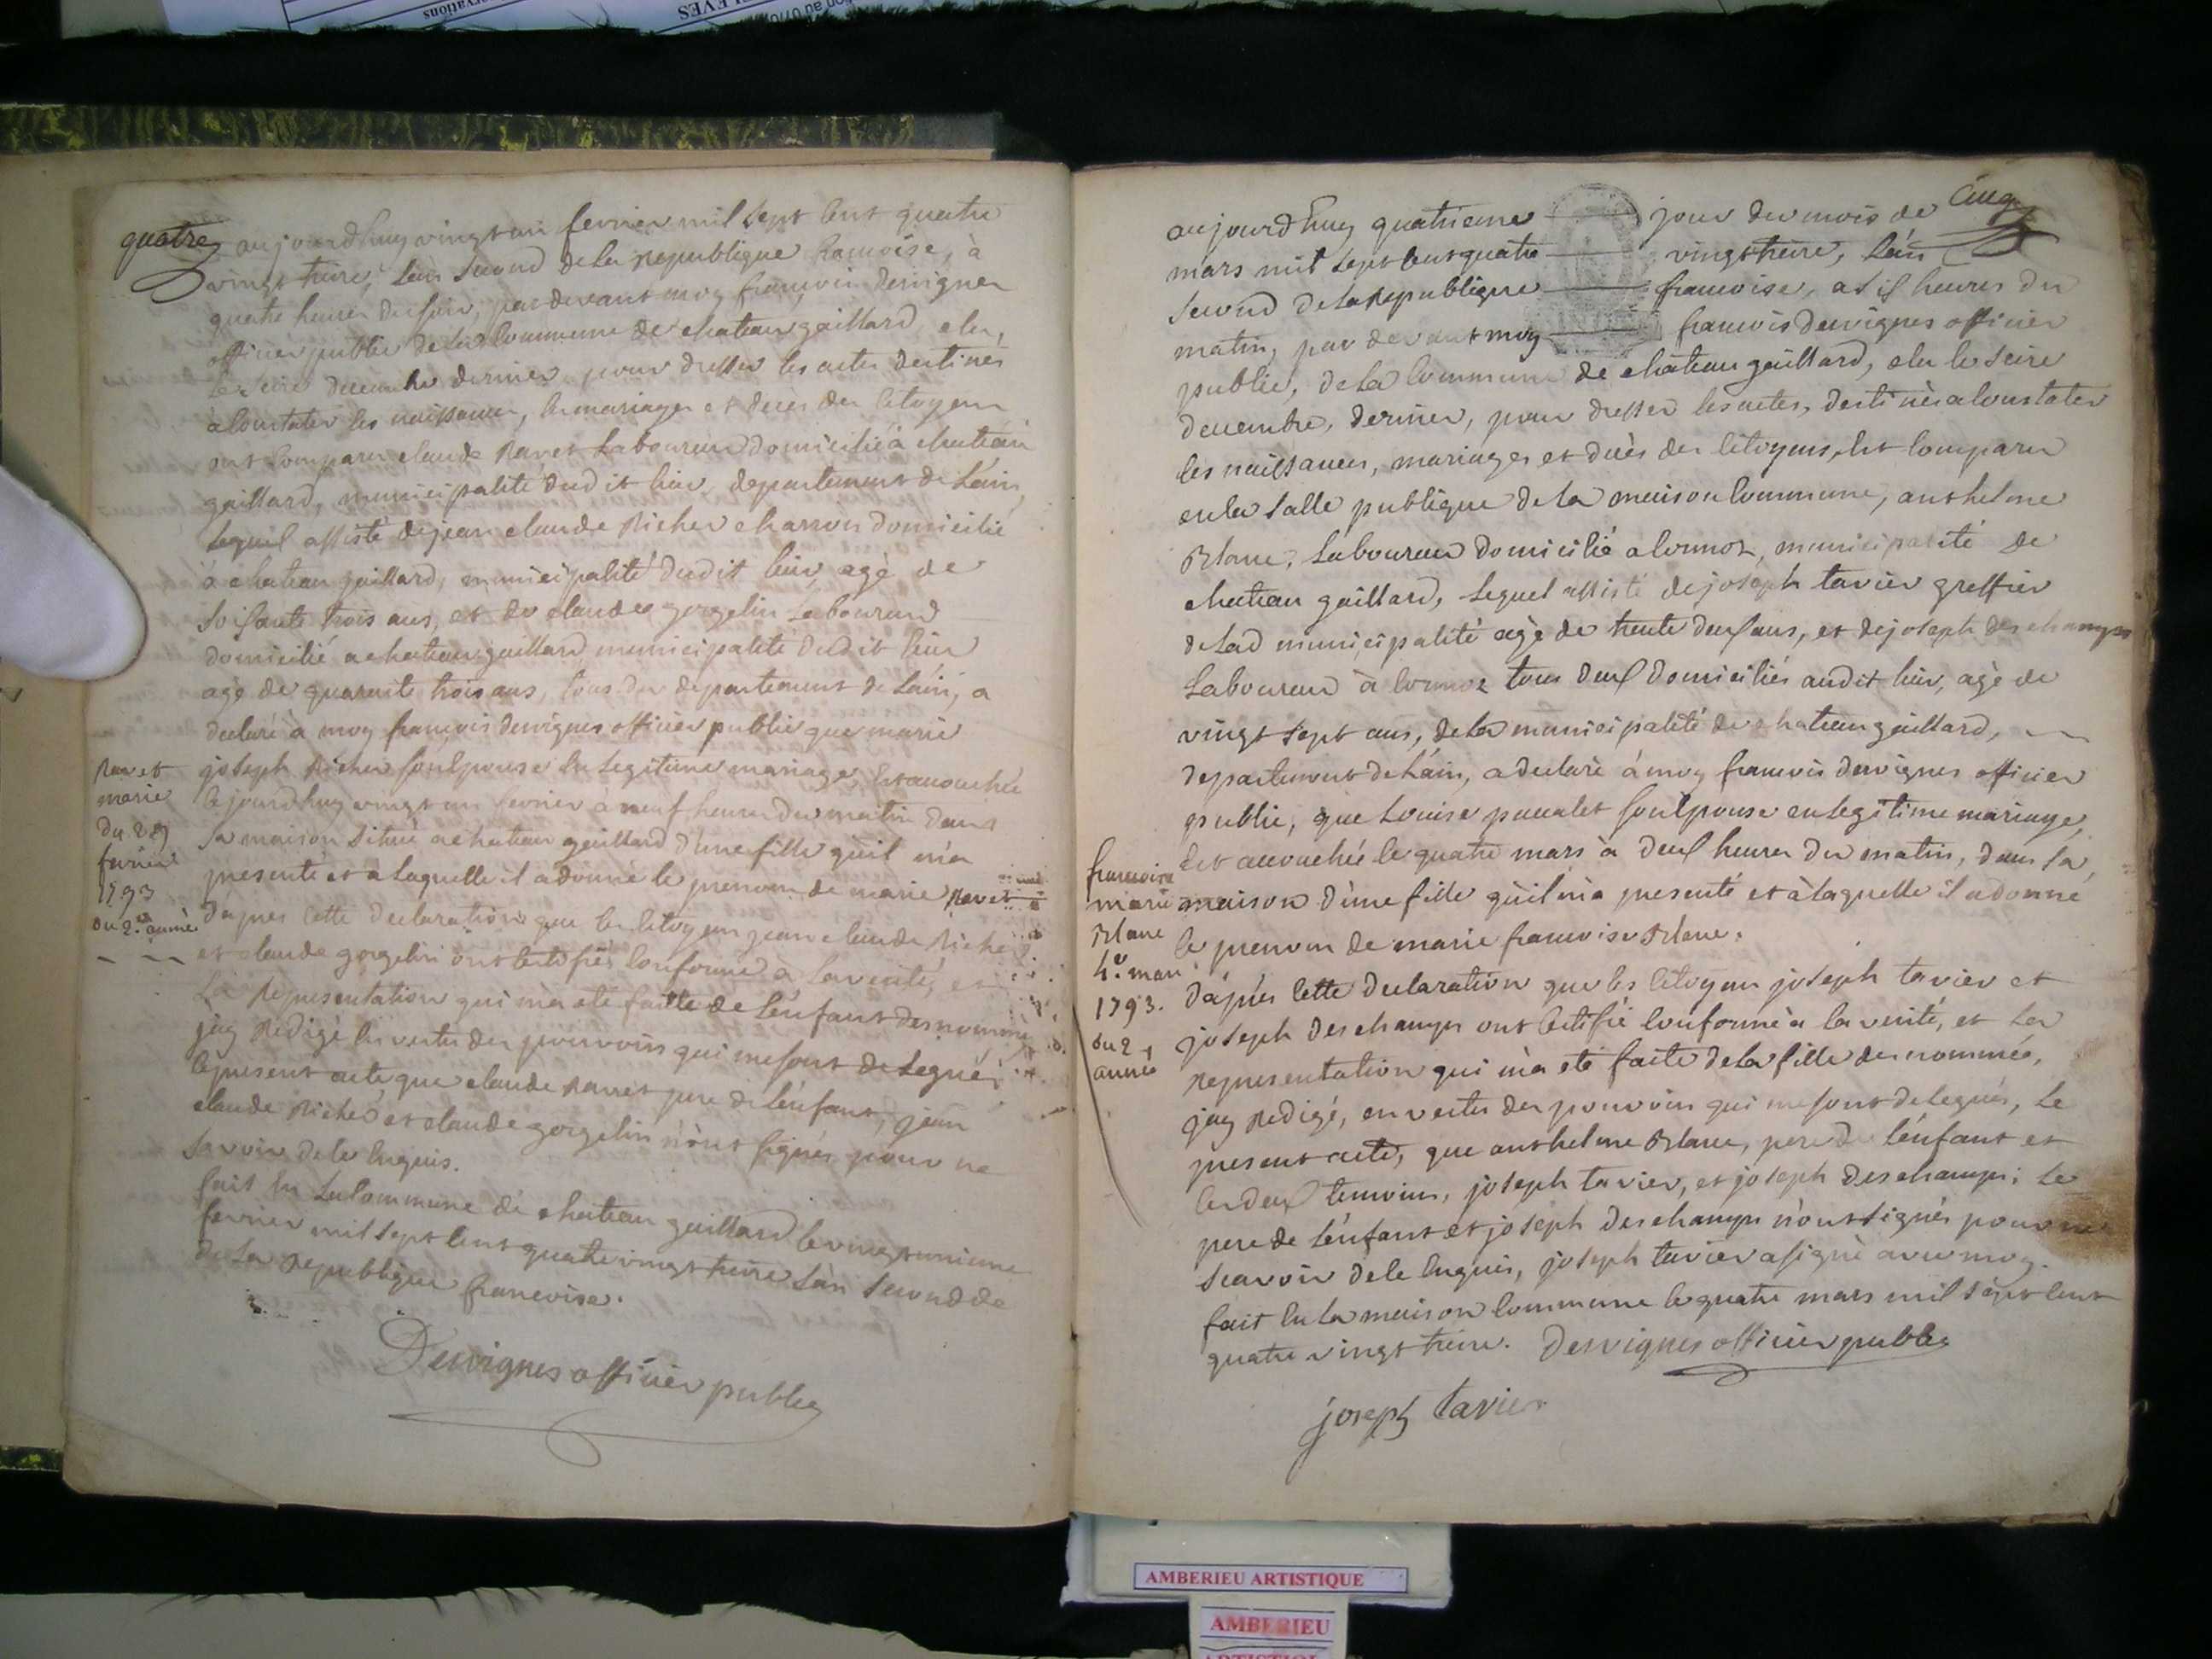 quatre
aujourdhuy vingt un fevrier mil sept cent quatre
vingt treize, l'an second de la republique francoise, à
quatre heures du soir, par devant moy francois desvignes
officier public de la commune de chateaugaillard, elu,
le seize decembre dernier pour dresser les actes destinés
a constater les naissances, les mariages et deces des citoyens
ont comparu claude Ravet Laboureur domicilié à chateau
gaillard, municipalité dudit lieu, departement de L'ain,
Lequel assisté de jean claude Richer charron domicilié
à chateau gaillard, municipalité dudit lieu, agé de
soisante trois ans, et de claude gorgelin Laboureur
domicilié a chateau gaillard municipalité dudit lieu
agé de quarante trois ans, tous du departement de L'ain, a
declaré à moy francois desvignes officier public que marie
joseph Richer son epouse en legitime mariage, est accouchée
cejourdhuy vingt un fevrier à neuf heures du matin dans
sa maison située a chateau gaillard d'une fille quil m'a
presenté et à laquelle il a donné le prenom de marie Ravet
d'apres cette declaration que les citoyens jean claude Riche
et claude gorgelin ont certifiés conforme à la verité, et
La Representation qui m'a eté faitte de l'enfant denommé
j'ay Redigé en vertu des pouvoirs qui me sont delegués
le present acte que claude Ravet pere de l'enfant, jean
claude Richer et claude gorgelin n'ont signés pour ne
savoir de ce enquis.
fait en la commune de chateau gaillard le vingt unieme
fevrier mil sept cent quatre vingt treize L'an second de
de la Republique francoise.
Desvignes officier public
Ravet
marie
Du 21
fevrier
1793
ou 2e année
Cinq
aujourdhuy quatrieme jour du mois de
mars mil sept cent quatre vingt treize, L'an
second de la Republique francoise, a six heures du
matin, par devant moy francois desvignes officier
public, de la commune de chateau gaillard, elu le seize
decembre, dernier, pour dresser les actes, destinés a constater
les naissances, mariages et décès des citoyens, est comparu
en la salle publique de la maison commune, anthelme
Blanc, Laboureur domicilié a cormoz, municipalité de
chateau gaillard, lequel assisté de joseph tavier greffier
de lad municipalité agé de trente deux ans, et de joseph deschamps
Laboureur à cormoz tous deux domiciliés audit lieu, agé de
vingt sept ans, de la municipalité de chateau gaillard,
departement de L'ain, a declaré à moy francois desvignes officier
public, que Louise son epouse en legitime mariage,
est accouchée le quatre mars à deux heures du matin, dans sa
maison d'une fille qu'il m'a presenté et à laquelle il a donné
le prenom de marie francoise Blanc.
D'après cette declaration que les citoyens joseph tavier et
joseph deschamps ont certifié conforme à la verité, et La
Representation qui m'a eté faite de la fille denommée,
j'ay Redigé, en vertu des pouvoirs qui me sont delegués, Le
present acte, que anthelme Blanc, pere de l'enfant et
les deux temoins, joseph tavier, et joseph deschamps; Le
pere de l'enfant et joseph deschamps n'ont signés pour ne
scavoir de ce enquis, joseph tavier a signé avec moy.
fait en la maison commune le quatre mars mil sept cent
quatre vingt treize. Desvignes officier public
joseph tavier
francoise
marie
Blanc
4e mars
1793.
ou 2
année
AMBERIEU ARTISTIQUE
AMBERIEU